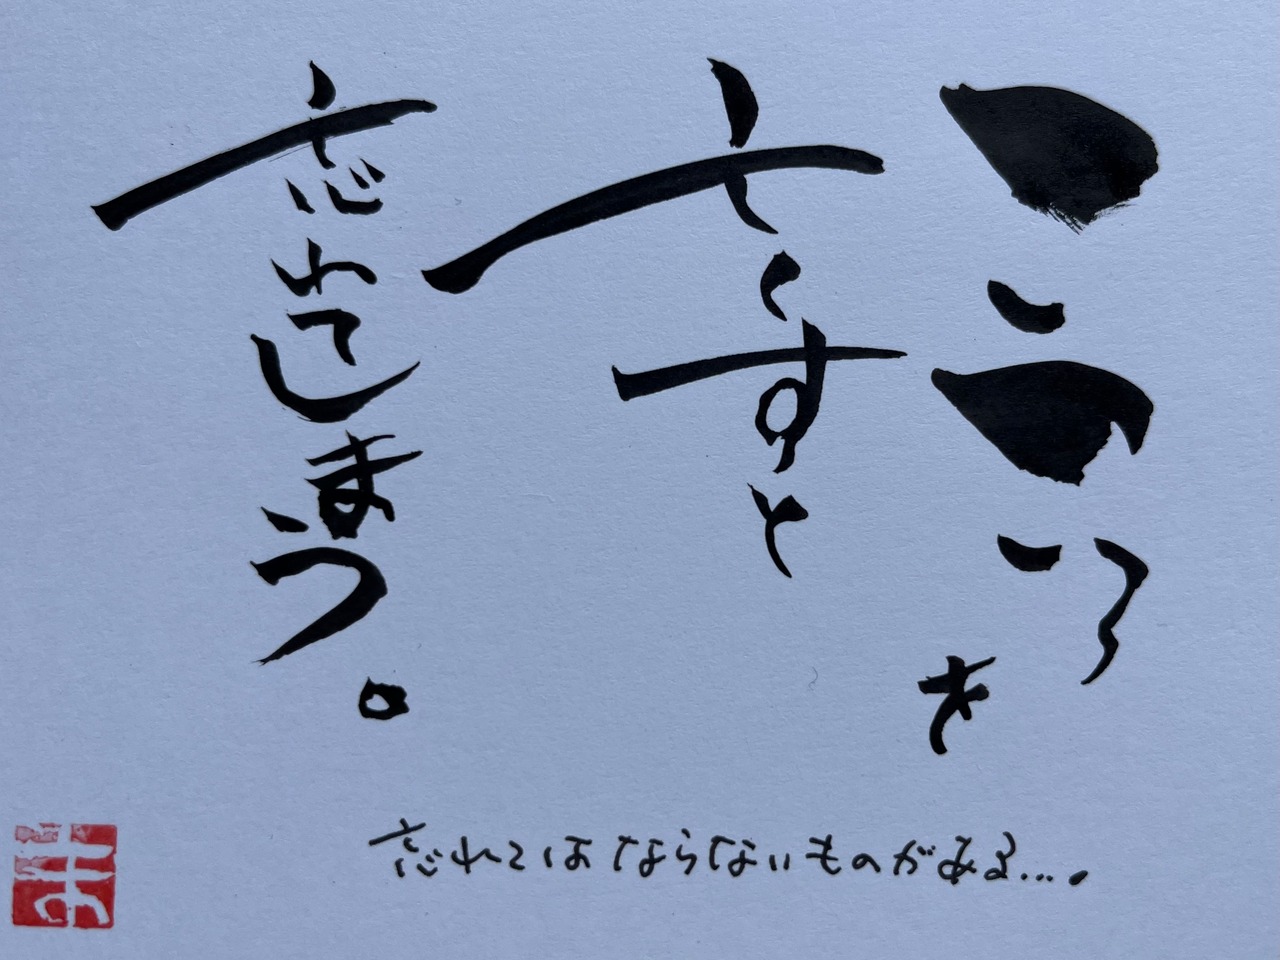 こころを
亡くすと
忘れてしまう。
忘れてはならないものがある…。